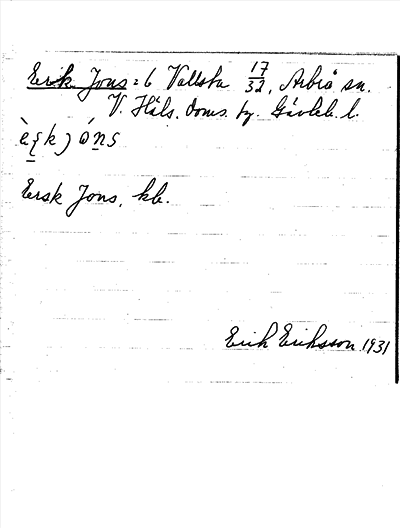 Erik Jons = 6 Vallsta 17/32, Arbrå sn.
V. Häls. doms. fg. Gävleb. l.
Ersk Jons, kb.
Erik Eriksson 1931